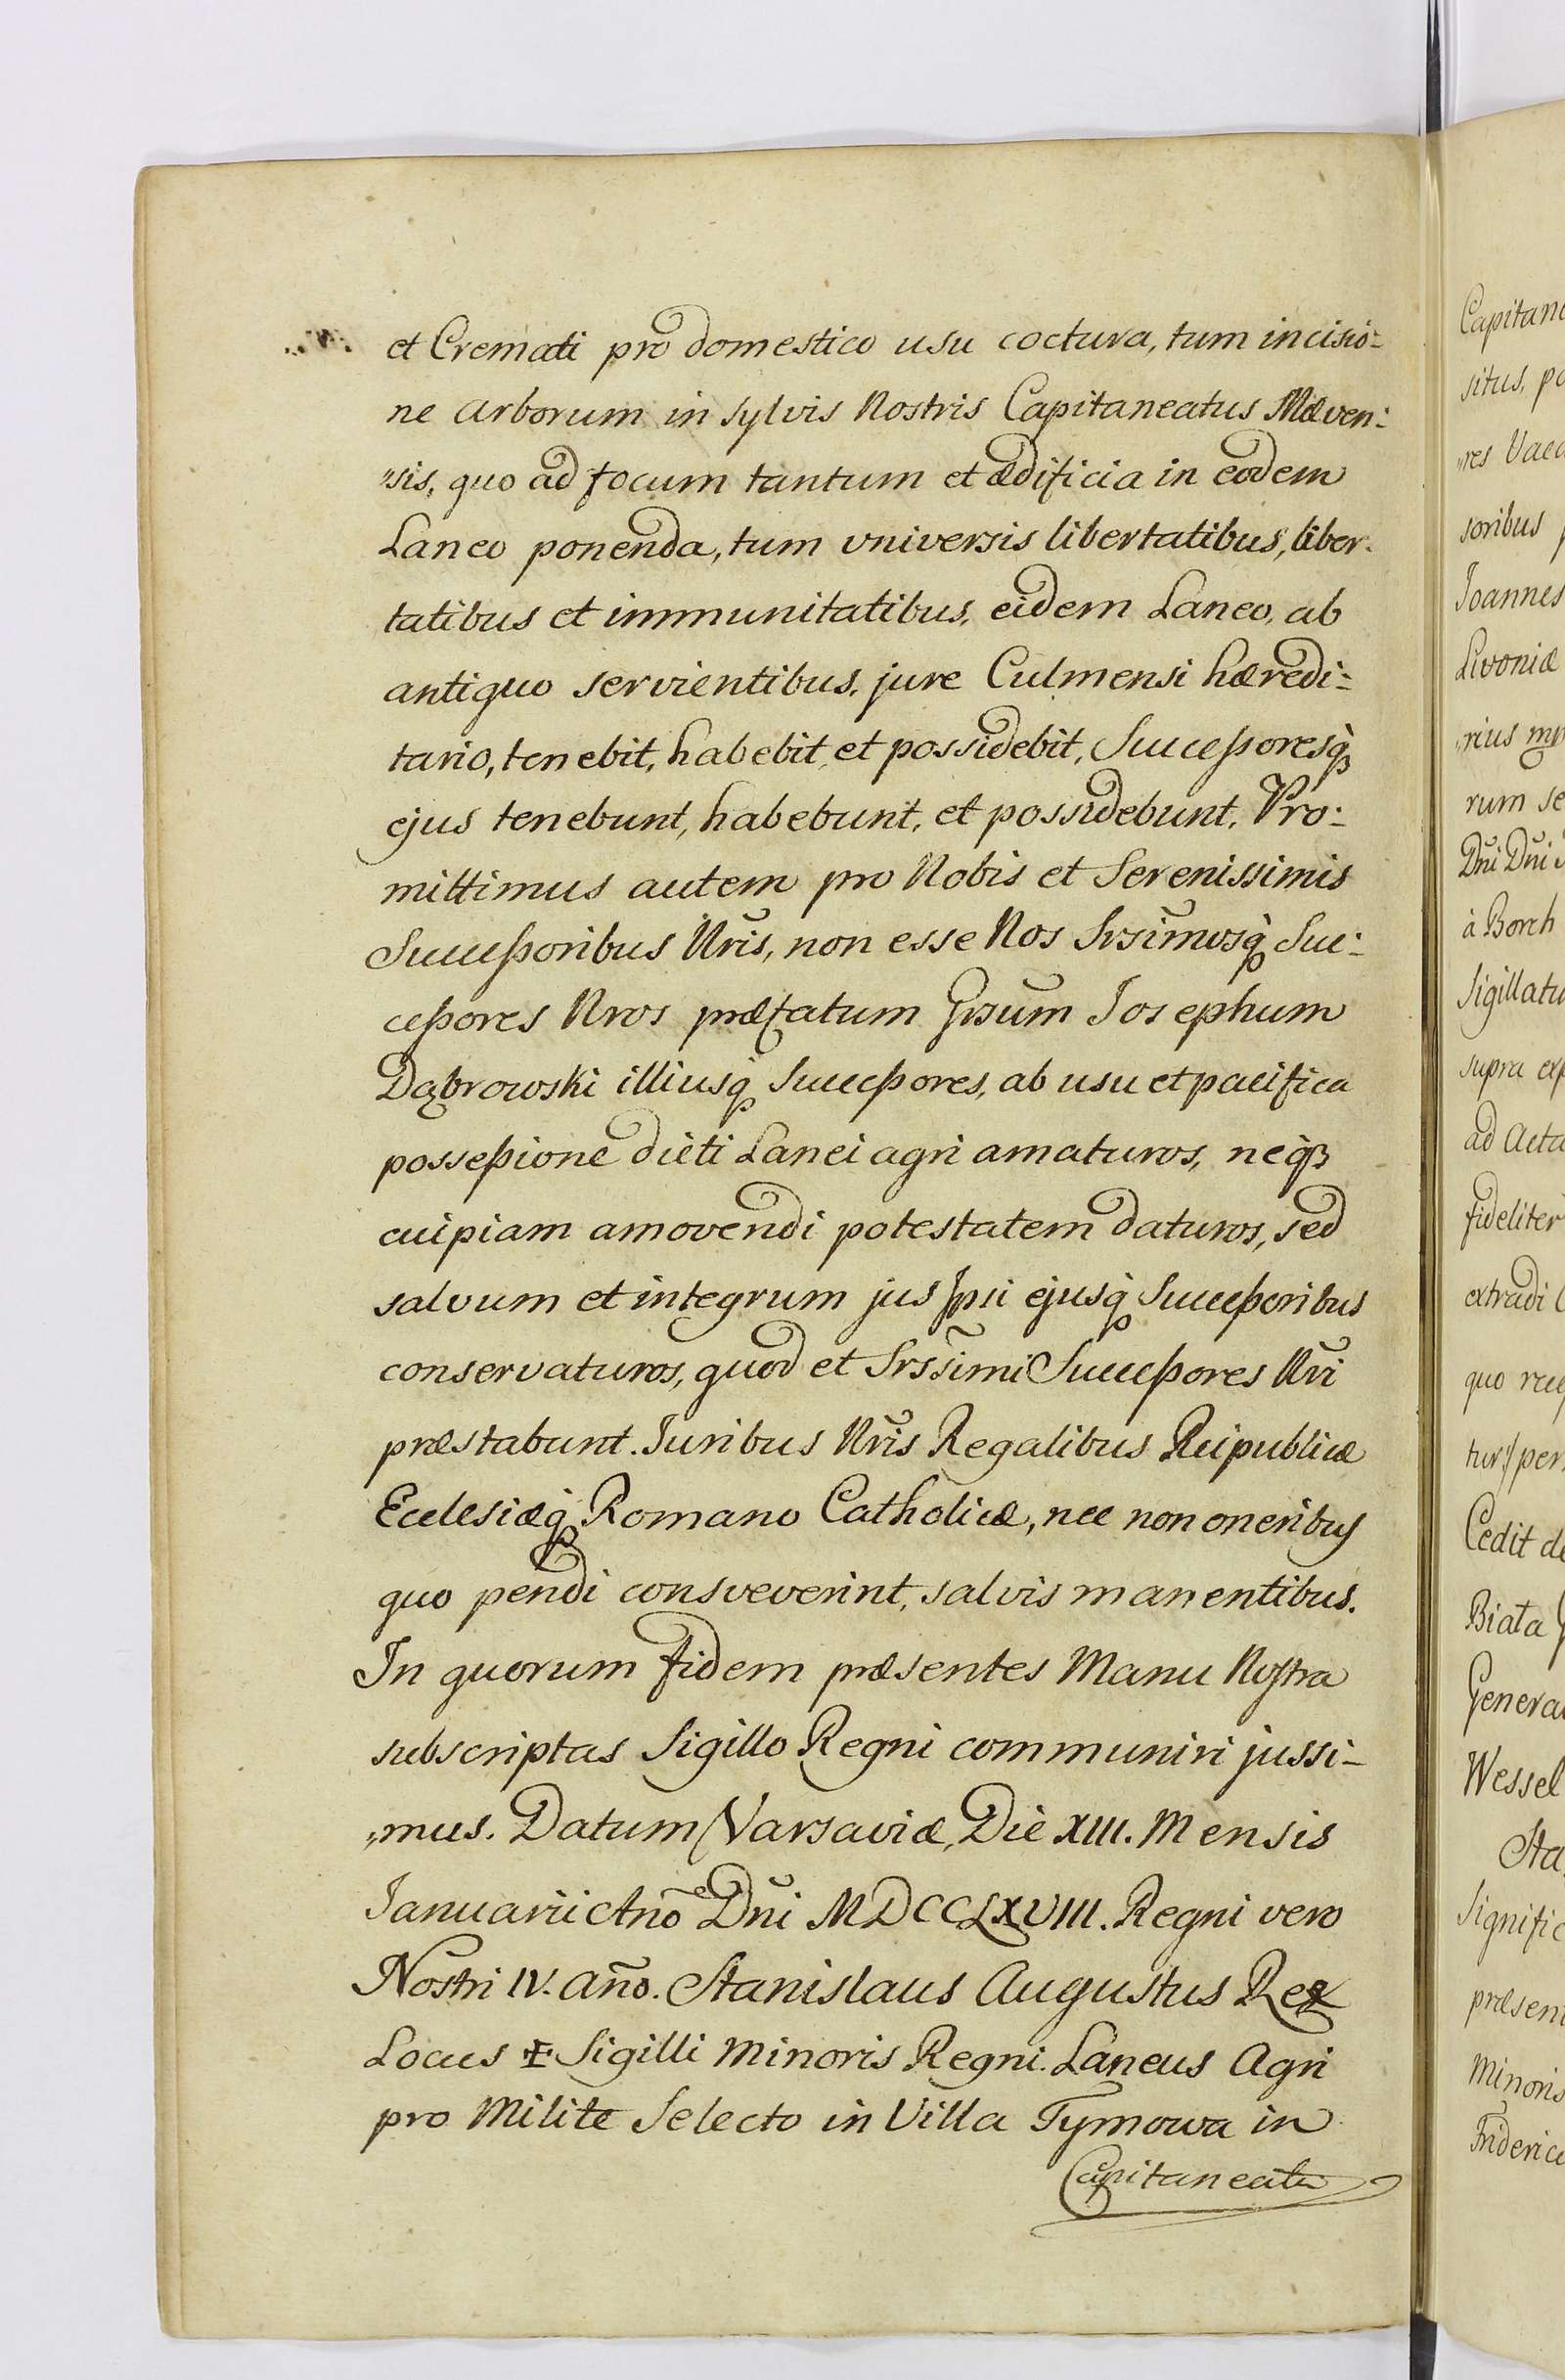 et Cremati pro domestico usu coctura, tum incisio-
ne arborum in sylvis Nostris Capitaneatus Mæven:
„sis, quo ad focum tantum et ædificia in eodem
Laneo ponenda, tum universis libertatibus, liber-
tatibus et immunitatibus, eidem Laneo, ab
antiquo servientibus, jure Culmensi hæredi:
tario, tenebit, habebit, et possidebit, Successoresq̀
ejus tenebunt, habebunt, et possidebunt. Pro:
mittimus autem pro Nobis et Serenissimis
Successoribus Nr̃is, non esse Nos Srsim̃osq̀ Suc:
cessores Nros præfatum Grsum̃ Josephum
Dąbrowski illiusq̀ Successores, ab usu et pacifica
possessione dicti Lanei agri amaturos, neq̀
cuipiam amovendi potestatem daturos, sed
salvum et integrum jus Ipsi ejusq̀ Successoribus
conservaturos, quod et Srss̃imi Successores Nr̃i
præstabunt. Juribus Nr̃is Regalibus Reipublicæ
Ecclesiæq̀ Romano Catholicæ, nec non oneribus
quo pendi consveverint, salvis manentibus.
In quorum fidem præsentes Manu Nostra
subscriptas Sigillo Regni communiri jussi-
„mus. Datum Varsaviæ, Die XIII. Mensis
Januarii Ano᷉ Dni᷉ MDCCLXVIII. Regni vero
Nostri IV. año. Stanislaus Augustus Rex
Locus ✠ Sigilli Minoris Regni. Laneus Agri
pro Milite Selecto in Villa Tymowa in
Capitaneatu
Capitane
situs, po
„res Vaca
soribus
Joannes
Livoniæ
„rius mp
rum se
Dñi Dñi
à Borch
Sigillatu
supra exp
ad Acta
fideliter
extradi
quo rec
tur/ per
Cedit de
Biata
General
Wessel
Sta
Signific
præsen
Minoris
Frideric